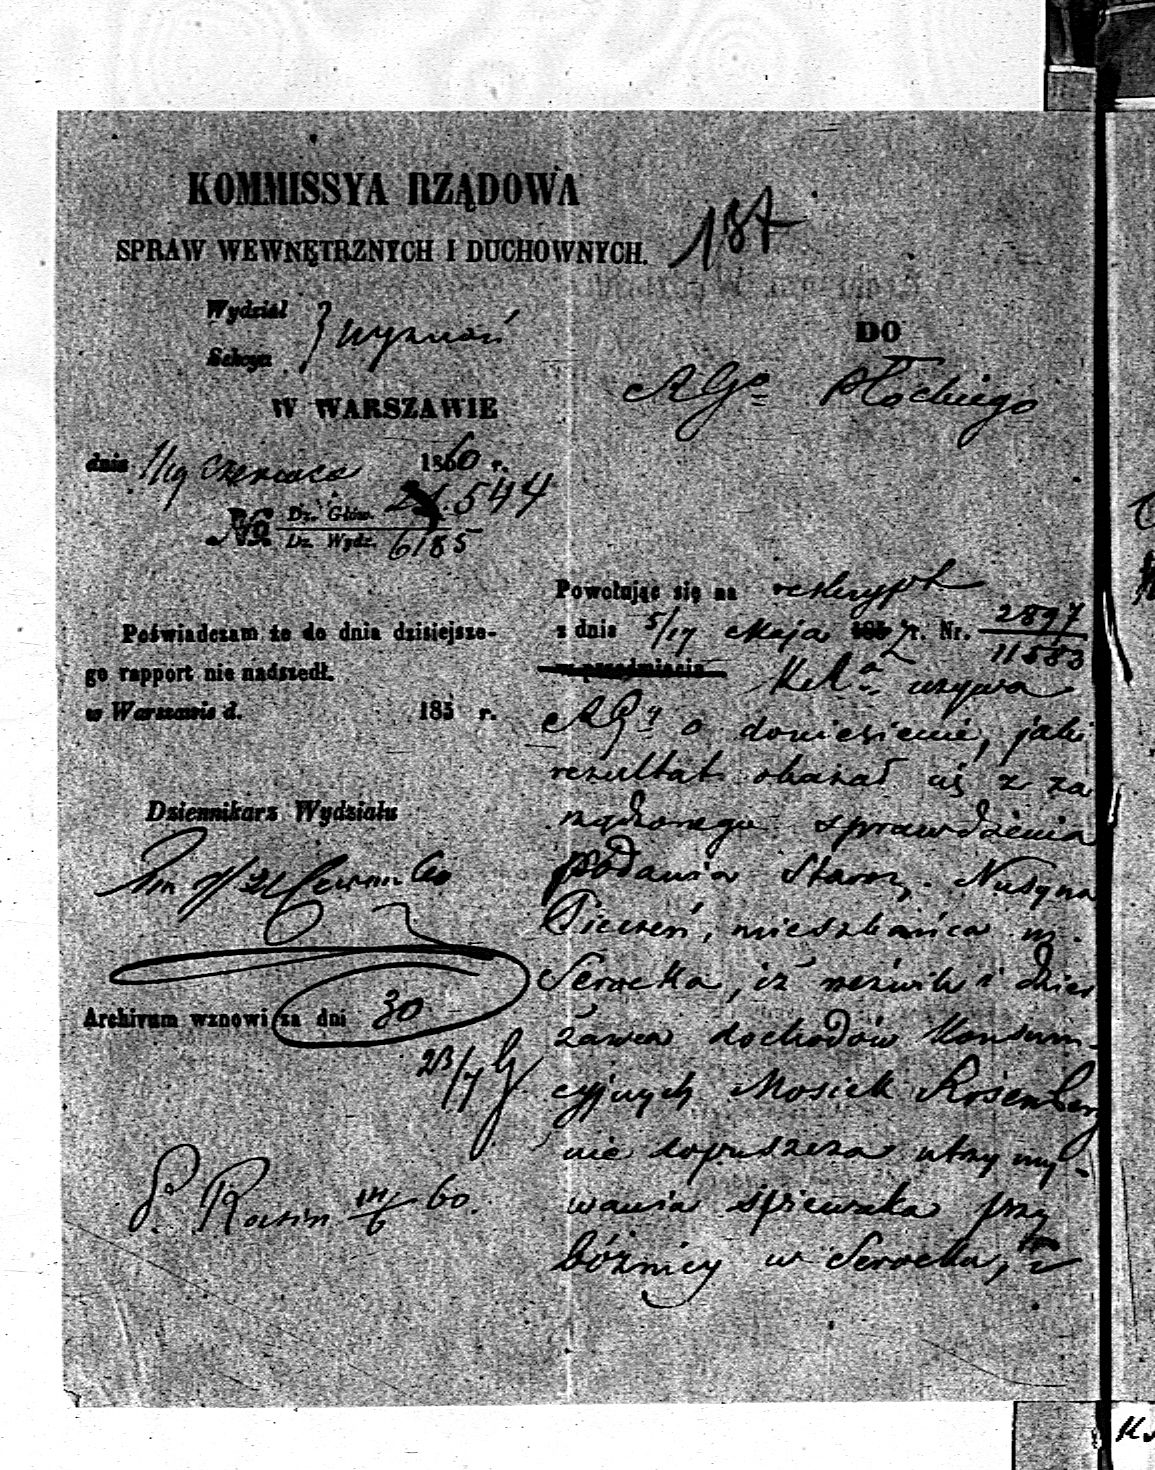 KOMMISSYA RZĄDOWA
SPRAW WEWNĘTRZNYCH I DUCHOWNYCH.
137
Wydział
Sekcya
Wyznań
W WARSZAWIE
dnia 7/19 Czerwca 1860 r.
№ Dz. Głów. 21.544
Dz. Wydz. 6185
Poświadczam że do dnia dzisiejsze-
go rapport nie nadszedł.
w Warszawie d. 185 r.
Dziennikarz Wydziału
Archivum wznowi za dni 30
23/7
DO
RGo Płockiego
Powołując się na reskrypt
z dnia 5/17 Maja r. Nr. 2897
11583
w przedmiocie
wzywa
o doniesienie, jaki
rezultat okazał się z za
rządzonego sprawdzenia
podania Staroz. Nusyna
Pieczeń, mieszkańca m.
Serocka, iż dzier
żawca dochodów Konsum-
cyjnych Mosiek Rosenberg
nie dopuszcza utrzymy-
wania śpiewaka przy
bóżnicy w Serocku, i